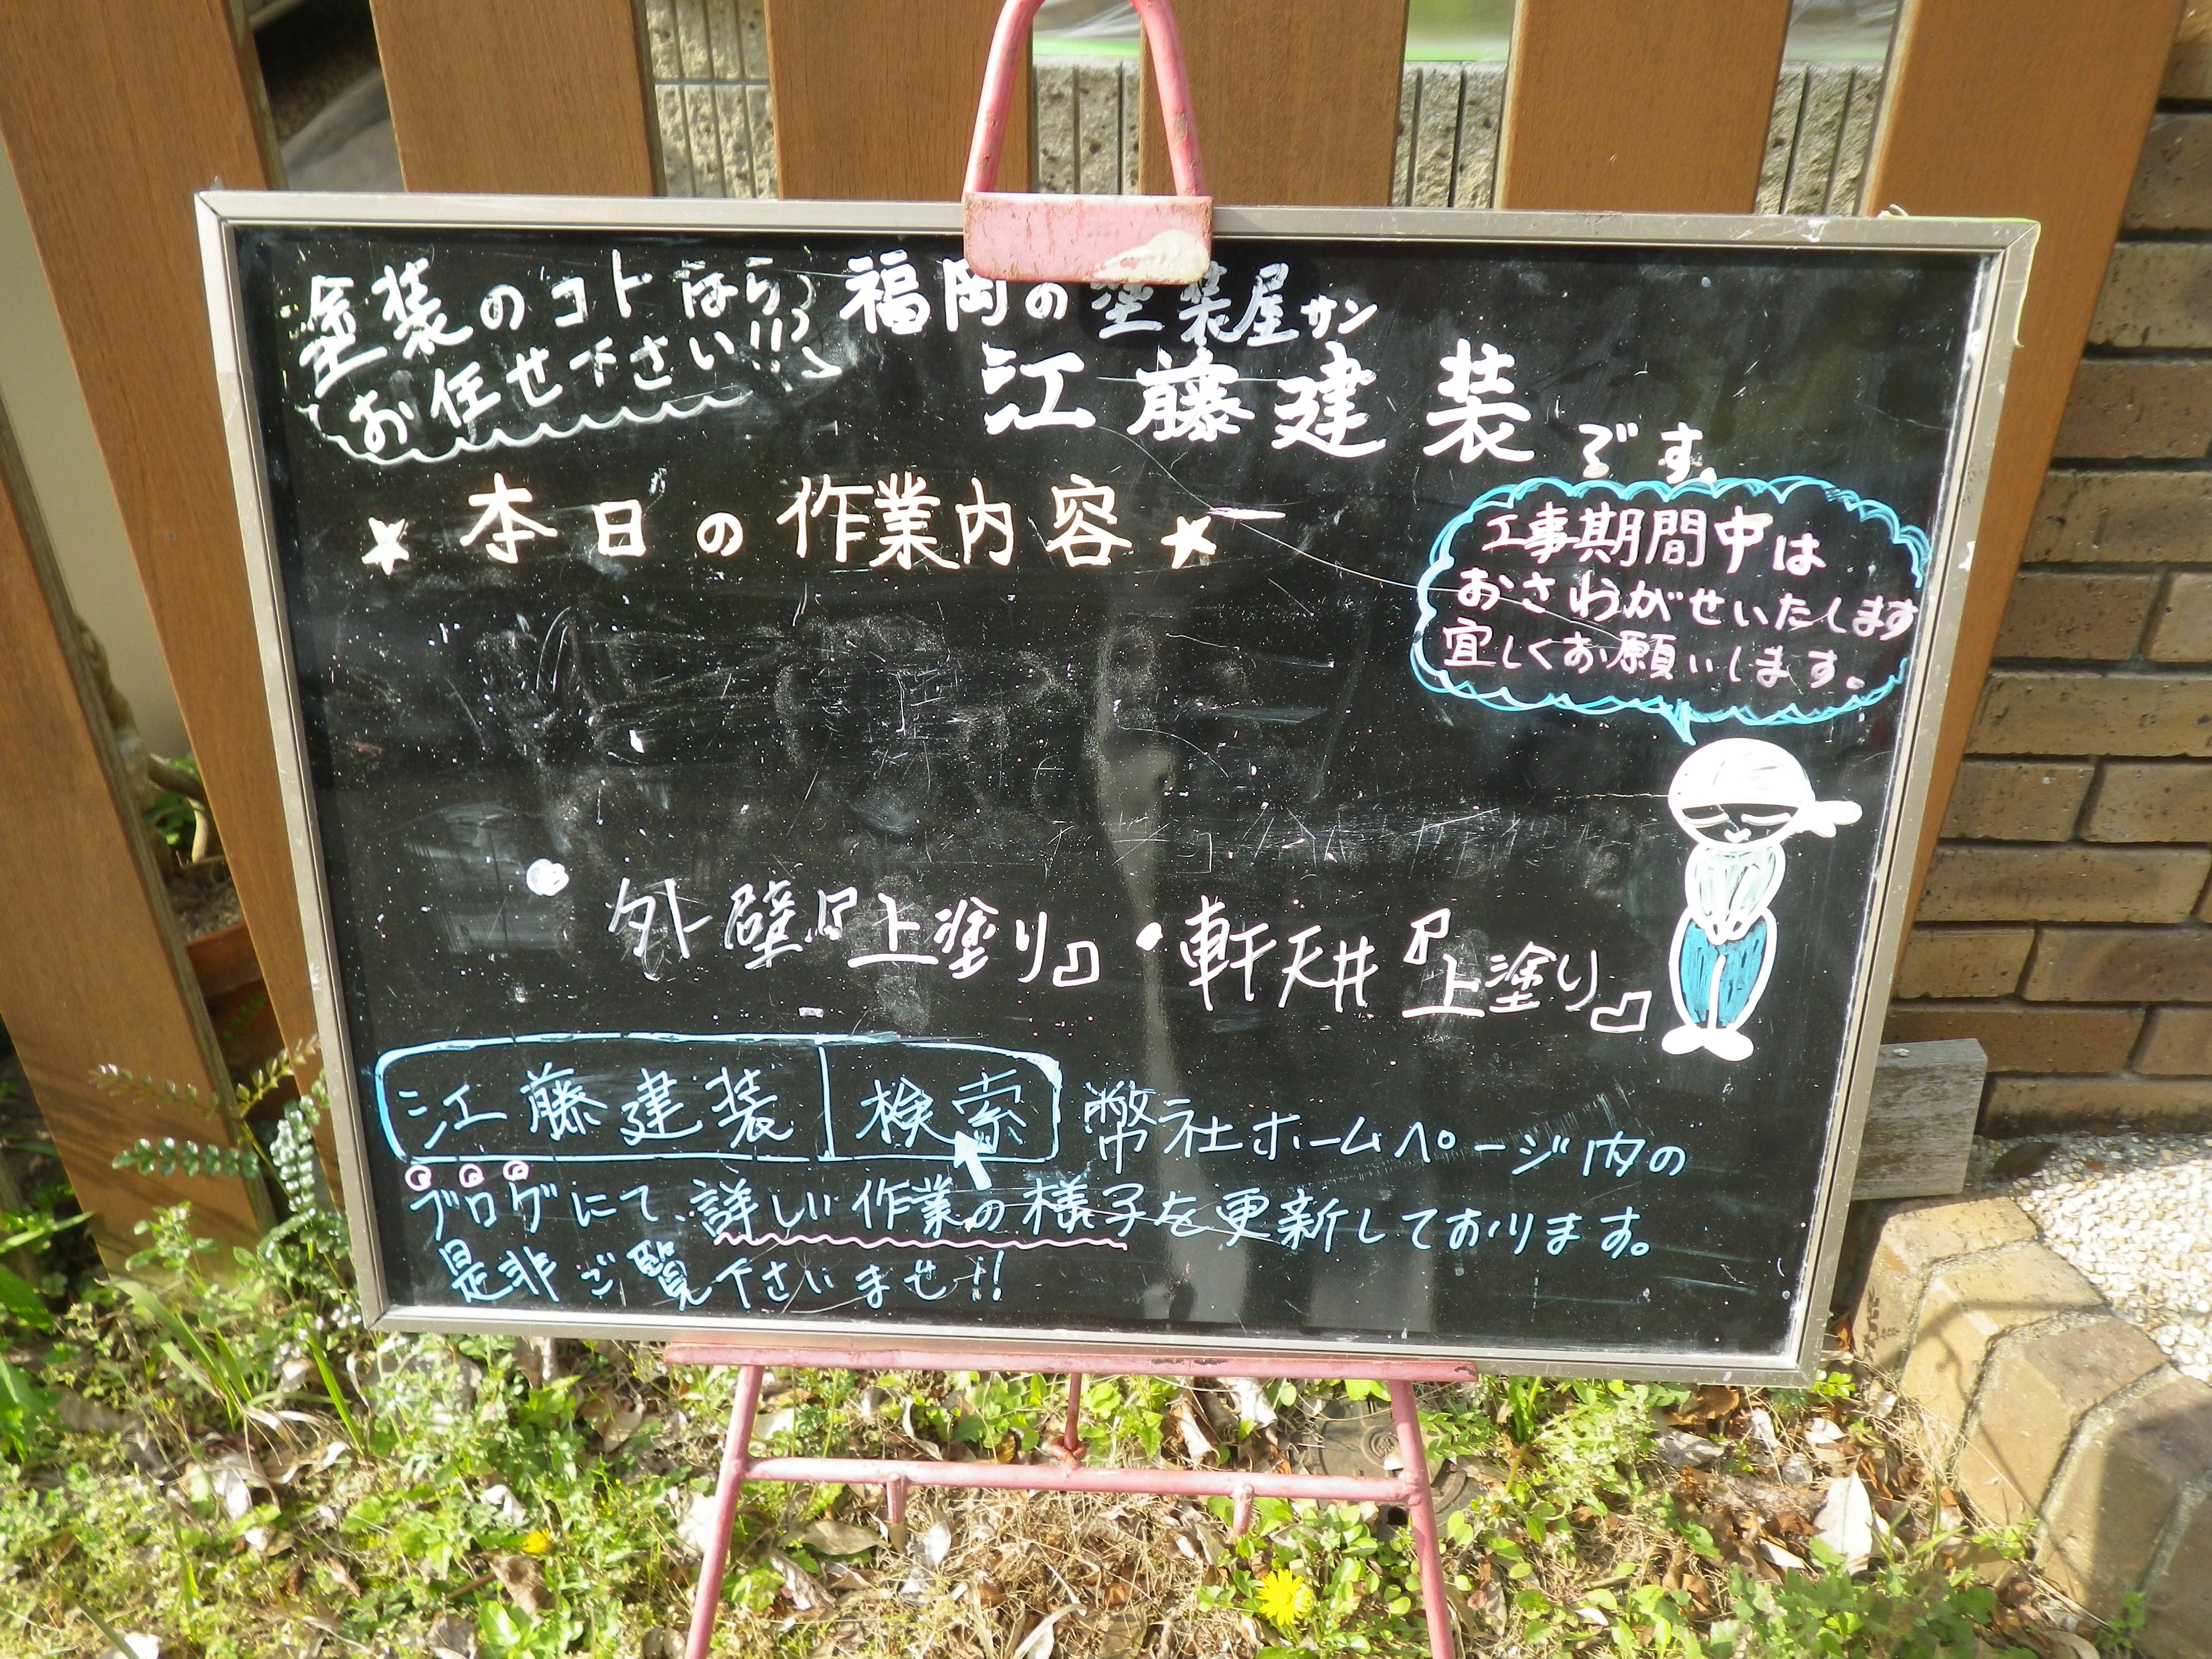 塗装のコトなら
お任せ下さい!!
福岡の塗装屋サン
江藤建装です。
★本日の作業内容★
工事期間中は
おさわがせいたします
宜しくお願いします。
・外壁『上塗り』・軒天井『上塗り』
江藤建装 検索 弊社ホームページ内の
ブログにて、詳しい作業の様子を更新しております。
是非ご覧下さいませ!!